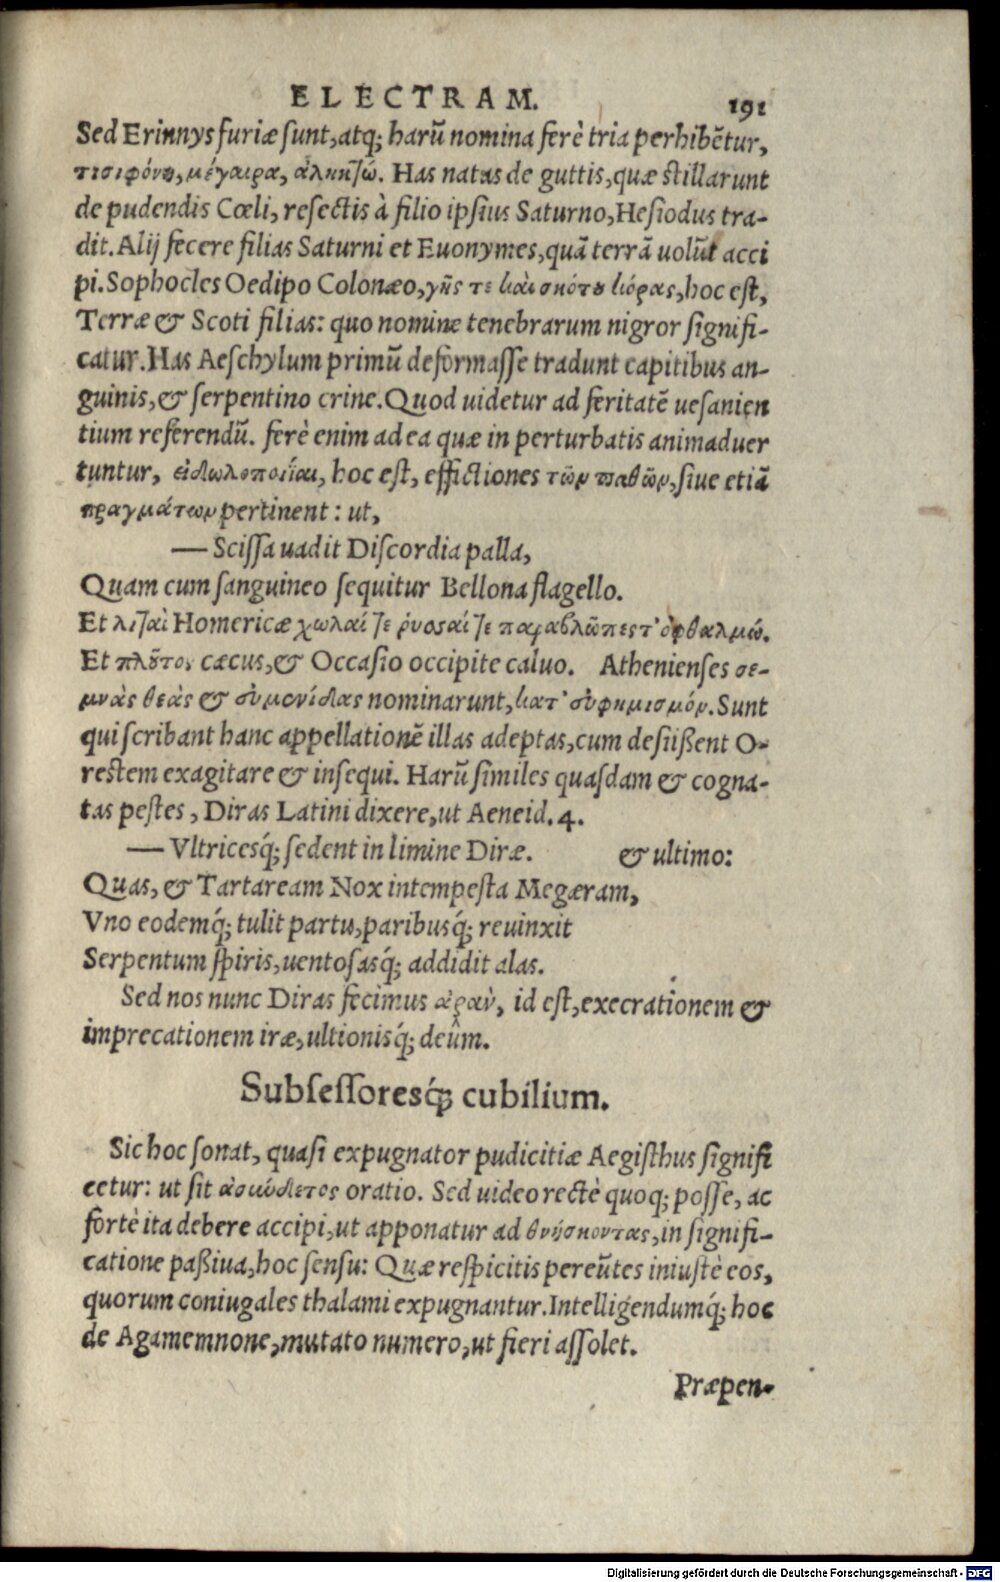 ELECTRAM. 191
Sed Erinnys furiæ sunt, atq; harũ nomina ferè tria perhibẽtur,
τισιφόνη, μέγαιρα, ἀληκτώ. Has natas de guttis, quæ stillarunt
de pudendis Cœli, resectis à filio ipsius Saturno, Hesiodus tra-
dit. Alij fecere filias Saturni et Euonymes, quã terrã uolũt acci
pi. Sophocles Oedipo Colonæo, γῆς τε καὶ σκότου κόρας, hoc est,
Terræ & Scoti filias: quo nomine tenebrarum nigror signifi-
catur. Has Aeschylum primũ deformasse tradunt capitibus an-
guinis, & serpentino crine. Quod uidetur ad feritatẽ uesanien
tium referendũ. ferè enim ad ea quæ in perturbatis animaduer
tuntur, εἰδωλοποιΐαι, hoc est, effictiones τῶν παθῶν, siue etiã
πραγμάτων pertinent: ut,
— Scissa uadit Discordia palla,
Quam cum sanguineo sequitur Bellona flagello.
Et λιταὶ Homericæ χωλαί τε ῥυσαί τε παραβλῶπες τ' ὀφθαλμώ.
Et πλοῦτος cæcus, & Occasio occipite caluo. Athenienses σε-
μνὰς θεὰς & εὐμενίδας nominarunt, κατ' εὐφημισμόν. Sunt
qui scribant hanc appellationẽ illas adeptas, cum desiißent O-
restem exagitare & insequi. Harũ similes quasdam & cogna-
tas pestes, Diras Latini dixere, ut Aeneid. 4.
— Vltricesq́; sedent in limine Diræ. & ultimo:
Quas, & Tartaream Nox intempesta Megæram,
Vno eodemq́; tulit partu, paribusq́; reuinxit
Serpentum spiris, uentosasq́; addidit alas.
Sed nos nunc Diras fecimus ἀρὰν, id est, execrationem &
imprecationem iræ, ultionisq́; deûm.
Subsessoresq́; cubilium.
Sic hoc sonat, quasi expugnator pudicitiæ Aegisthus signifi
cetur: ut sit ἀσύνδετος oratio. Sed uideo rectè quoq; posse, ac
fortè ita debere accipi, ut apponatur ad θνήσκοντας, in signifi-
catione paßiua, hoc sensu: Quæ respicitis pereũtes iniustè eos,
quorum coniugales thalami expugnantur. Intelligendumq́; hoc
de Agamemnone, mutato numero, ut fieri assolet.
Præpen-
Digitalisierung gefördert durch die Deutsche Forschungsgemeinschaft - DFG